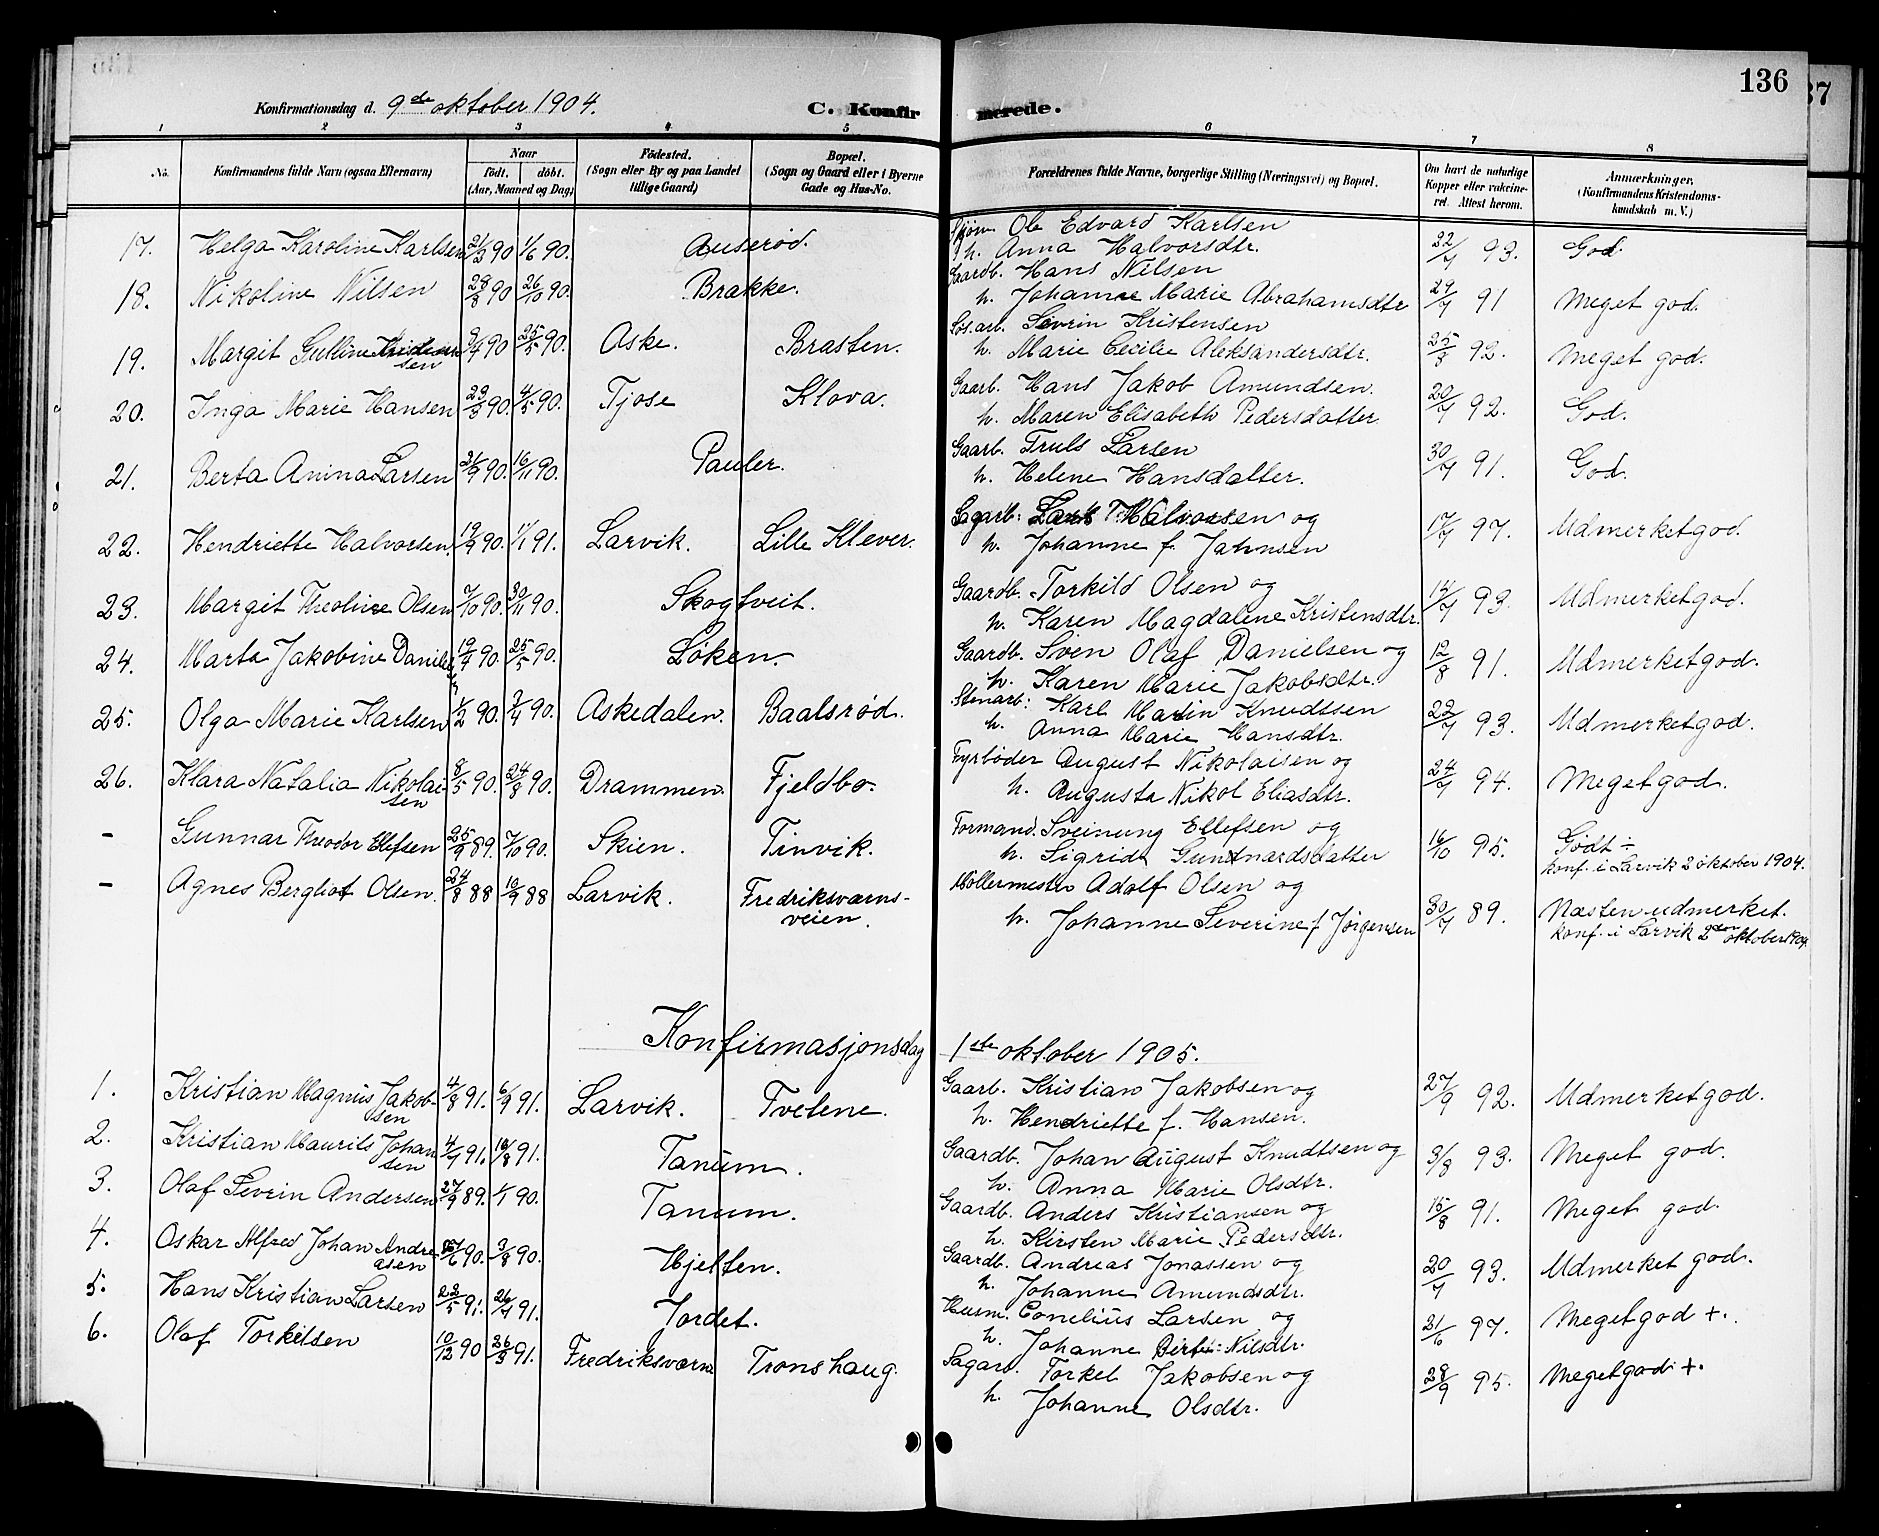 136
37
Konfirmationsdag d. 9de oktober 1904. C. Konfir merede.
1 2 3 4 5 6 7 8
No. Konfirmandens fulde Navn (ogsaa Efternavn) Naar født. døbt. (Aar, Maaned og Dag) Fødested. (Sogn eller By og paa Landet tillige Gaard) Bopæl. (Sogn og Gaard eller i Byerne Gade og Hus-No. Forældrenes fulde Navne, borgerlige Stilling (Næringsvei) og Bopæl. Om havt de naturlige Kopper eller vakcineret. Attest herom. Anmærkninger. (Konfirmandens Kristendomskundskab m. V.)
17. Helga Karoline Karlsen 21/3 90 1/6 90. Auserød. Sjøm Ole Edvard Karlsen
h. Anna Halvorsdtr. 22/7 93. God.
18. Nikoline Nilsen 28/8 90 26/10 90. Brakke. Gaardb. Hans Nilsen
h. Johanne Marie Abrahamsdtr 29/7 91 Meget god.
19. Margit Gulline Kristensen 9/4 90 25/5 90. Aske. Brasten. Løs.arb. Sevrin Kristensen
h. Marie Cecilie Aleksandersdtr. 25/8 92. Meget god.
20. Inga Marie Hansen 23/3 90. 4/5 90. Tjose Klova. Gaarb. Hans Jakob Amundsen.
h. Maren Elisabeth Pedersdatter. 20/7 92. God.
21. Berta Anina Larsen 21/9 90. 16/11 90. Pauler. Gaarb. Truls Larsen
h. Helene Hansdatter. 30/7 91. God.
22. Hendriette Halvorsen 19/9 90. 1/1 91. Larvik. Lille Klever. Sagarb: Lars T. Halvorsen og
h. Johanne f. Jahnsen 17/7 97. Udmerketgod.
23. Margit Theoline Olsen 7/10 90. 30/11 90. Skogtveit. Gaardb. Torkild Olsen og
h. Karen Magdalene Kristensdtr. 14/7 93. Udmerketgod.
24. Marta Jakobine Danielsen 19/4 90. 25/5 90. Løken. Gaardb. Sven Olaf Danielsen og
h. Karen Marie Jakobsdtr. 12/8 91. Udmerketgod.
25. Olga Marie Karlsen 1/2 90. 7/4 90. Askedalen. Baalsrød. Stenarb: Karl Martin Knudtsen
h. Anna Marie Hansdtr. 22/7 93. Udmerketgod.
26. Klara Natalia Nikolaisen 8/5 90. 24/8 90. Drammen. Fjeldbo. Fyrbøder August Nikolaisen og
h. Augusta Nikol Eliasdtr. 24/7 94. Megetgod.
– Gunnar Theodor Ellefsen 25/9 89. 7/10 90. Skien. Tinvik. Formand. Sveinung Ellefsen og
h. Sigrid Gunnardsdatter 16/10 95. Godt ÷
konf. i Larvik 2 oktober 1904.
– Agnes Bergliot Olsen. 24/8 88 10/9 88 Larvik. Fredriksværns-
veien. Møllermester Adolf Olsen og
h. Johanne Severine f Jørgensen 30/7 89. Næsten udmerket.
konf. i Larvik 2den oktober 1904.
Konfirmasjonsdag 1ste oktober 1905.
1. Kristian Magnus Jakobsen 4/8 91. 6/9 91. Larvik. Tvetene. Gaarb. Kristian Jakobsen og
h. Hendriette f. Hansen. 27/9 92. Udmerketgod.
2. Kristian Maurits Johansen 4/7 91. 16/8 91. Tanum. Gaardb. Johan August Knudtsen og
h. Anna Marie Olsdtr. 3/8 93. Meget god.
3. Olaf Sevrin Andersen 27/9 89. 1/1 90. Tanum. Gaardb. Anders Kristiansen og
h. Kirsten Marie Pedersdtr. 15/8 91. Meget god.
4. Oskar Alfred Johan Andreasen 27/6 90. 3/8 90. Hjelten. Gaardb. Andreas Jonassen og
h. Johanne Amundsdtr. 20/7 93. Udmerket god.
5. Hans Kristian Larsen 23/5 91. 26/7 91. Jordet. Husm. Conelius Larsen og
h. Johanne Birte: Nilsdtr. 21/6 97. Megetgod +.
6. Olaf Torkelsen 10/12 90 26/3 91. Fredriksværn Tronshaug. Sagarb. Torkel Jakobsen og
h. Johanne Olsdtr. 28/9 95. Megetgod +.